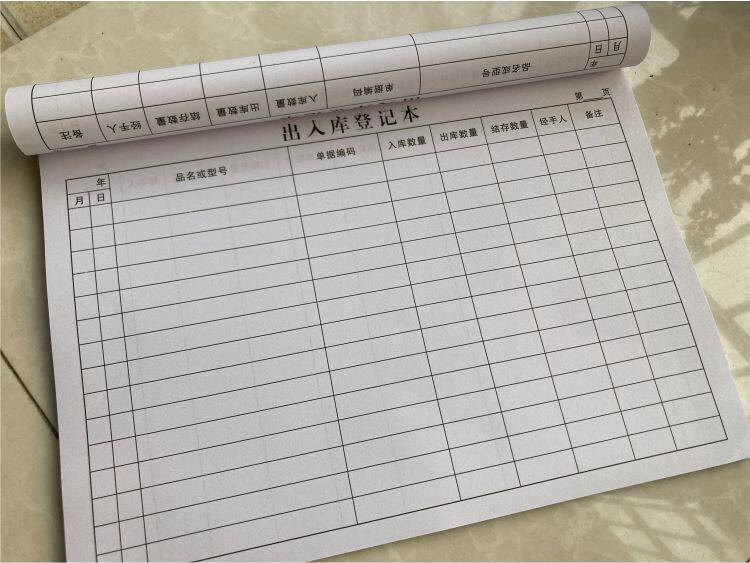 备注 经手人 结存数量 出库数量 入库数量 单据编码 品名或型号 年
日 月
出入库登记本
第 页
年 品名或型号 单据编码 入库数量 出库数量 结存数量 经手人 备注
月 日